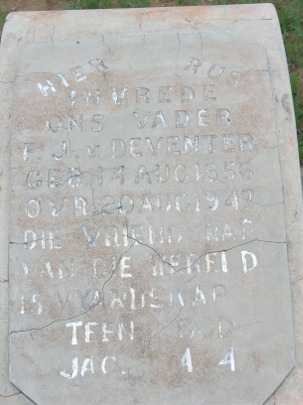 HIER RUS
IN VREDE
ONS VADER
F. J. v. DEVENTER
GEB 14 AUG 1856
OVR. 20 AUG 1942
DIE VRIENDSKAP
VAN DIE WERELD
IS VYANDSKAP
TEEN GOD
JAC. 4 4